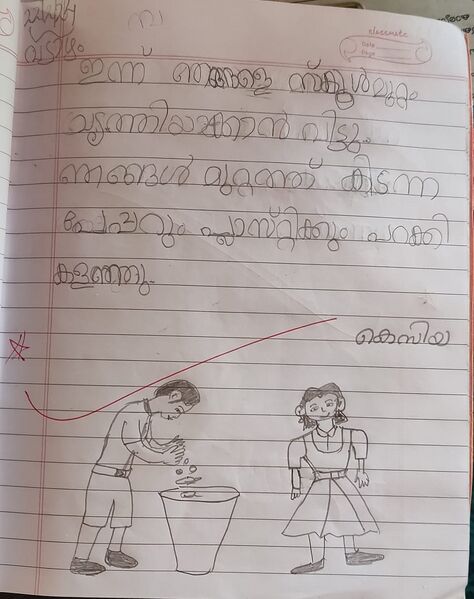 classmate
Date
Page
ഇന്ന് ഞങ്ങളെ സ്കൂൾമുറ്റം
വൃത്തിയാക്കാൻ വിട്ടു.
ഞങ്ങൾ മുറ്റത്ത് കിടന്ന
പേപ്പറും പ്ലാസ്റ്റിക്കും പറക്കി
കളഞ്ഞു.
കെസിയ